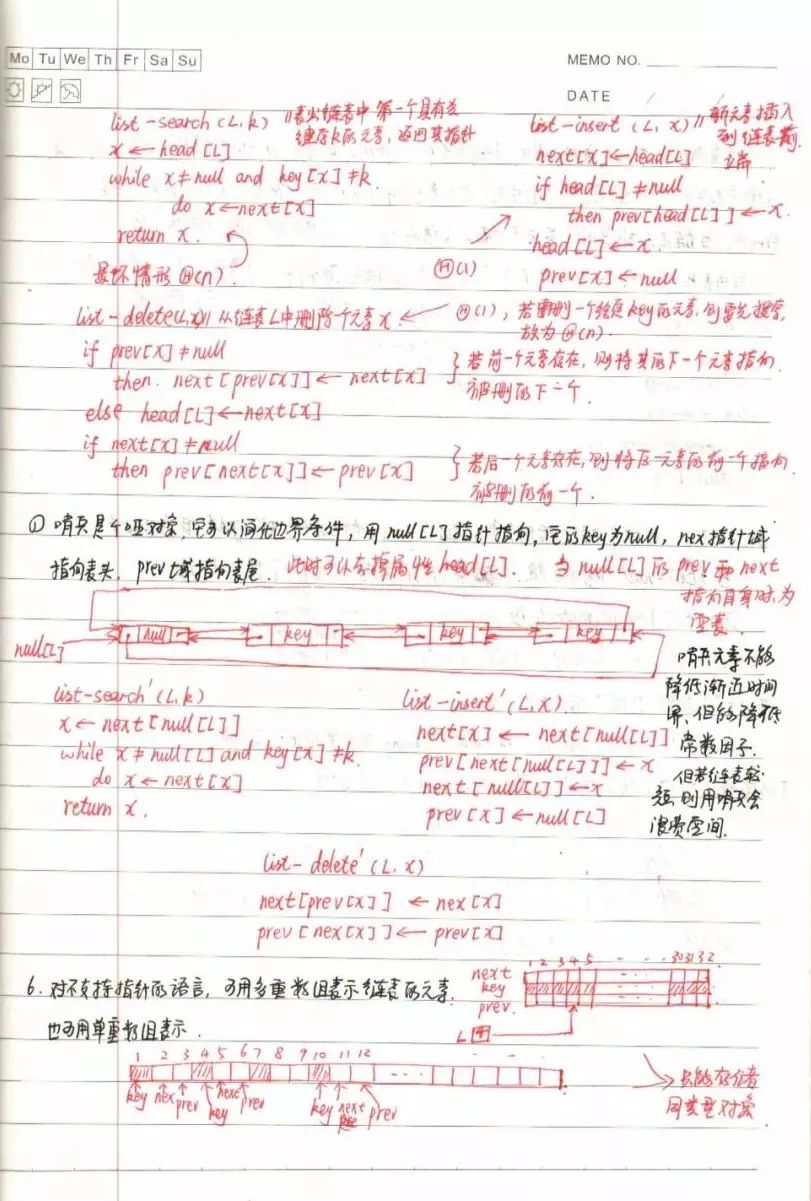 Mo Tu We Th Fr Sa Su
MEMO NO.
DATE / /
list-search(L,k) //表出链表中第一个具有关
键存k的元素,返回其指针
x←head[L]
while x≠null and key[x]≠k
do x←next[x]
return x.
最坏情形Θ(n).
list-insert(L,x) //新元素插入
到链表前
端
next[x]←head[L]
if head[L]≠null
then prev[head[L]]←x.
head[L]←x.
prev[x]←null
Θ(1)
list-delete(L,x)// 从链表L中删除个元素x. ← Θ(1),若需删一个给定key的元素,则需先搜索,
故为Θ(n).
if prev[x]≠null
then. next[prev[x]]←next[x] } 若前一个元素存在,则将其的下一个元素指向.
被删的下一个.
else head[L]←next[x]
if next[x]≠null
then prev[next[x]]←prev[x] } 若后一个元素存在,则将后一元素的前一个指向.
被删的前一个.
① 哨兵是个哑对象,它可以简化边界条件,用null[L]指针指向,它的key为null,nex指针域
指向表头,prev域指向表尾. 此时可以去掉属性head[L]. 当null[L]的prev和next
指向自身时,为
空表.
null[L] null key key key
哨兵元素不能
降低渐近时间
界,但能降低
常数因子.
但若链表较
短,则用哨兵会
浪费空间.
list-search'(L,k)
x←next[null[L]]
while x≠null[L] and key[x]≠k.
do x←next[x]
return x.
list-insert'(L,x).
next[x]←next[null[L]]
prev[next[null[L]]]←x
next[null[L]]←x
prev[x]←null[L]
list-delete'(L,x)
next[prev[x]]←nex[x]
prev[nex[x]]←prev[x]
6. 对不支持指针的语言,可用多重数组表示链表的元素.
也可用单重数组表示.
1 2 3 4 5 - - - 30 31 32
next
key
prev.
L 4
1 2 3 4 5 6 7 8 9 10 11 12 - -
key nex prev key next prev key next prev
只能存储
同类型对象